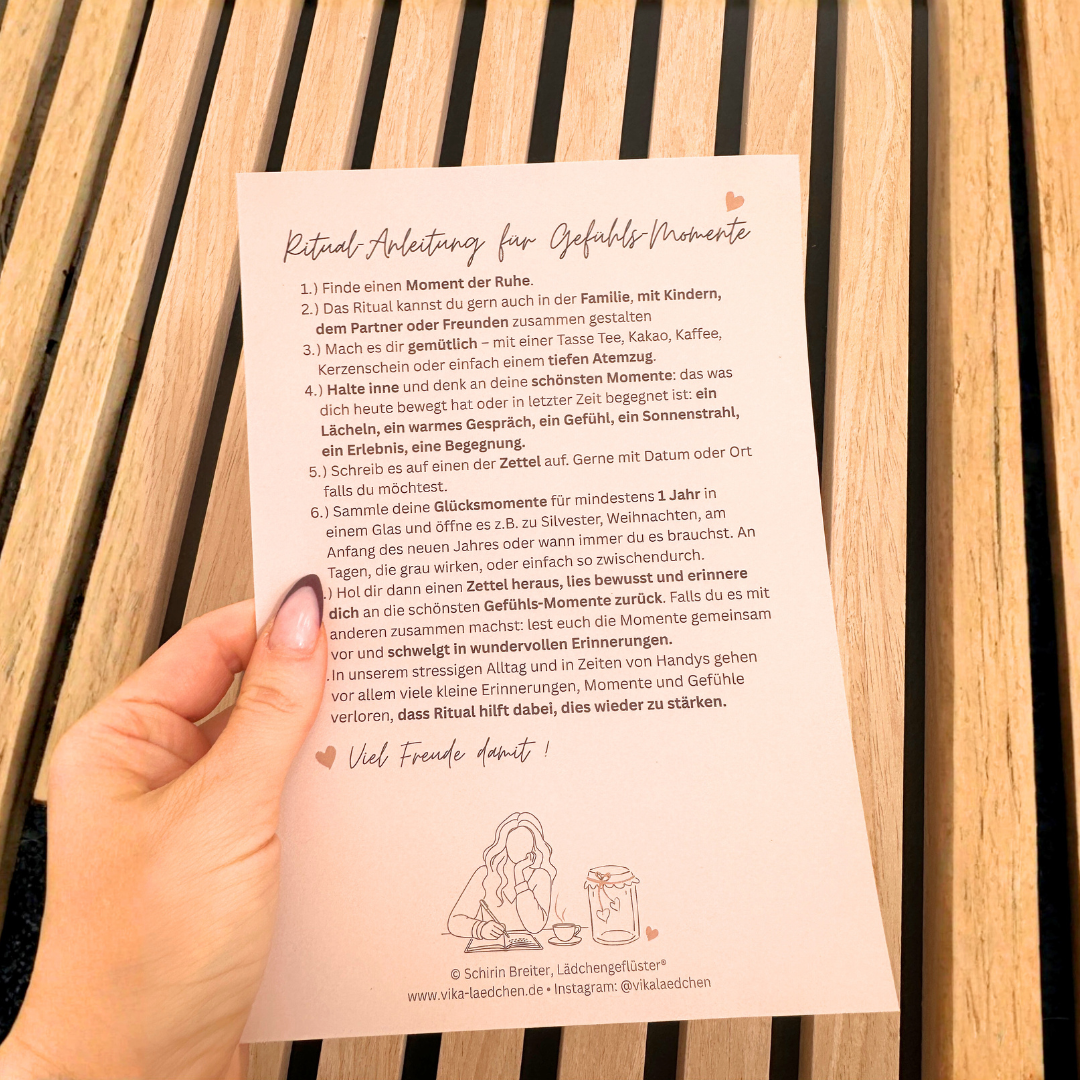 Ritual-Anleitung für Gefühls-Momente
1.) Finde einen Moment der Ruhe.
2.) Das Ritual kannst du gern auch in der Familie, mit Kindern,
dem Partner oder Freunden zusammen gestalten
3.) Mach es dir gemütlich – mit einer Tasse Tee, Kakao, Kaffee,
Kerzenschein oder einfach einem tiefen Atemzug.
4.) Halte inne und denk an deine schönsten Momente: das was
dich heute bewegt hat oder in letzter Zeit begegnet ist: ein
Lächeln, ein warmes Gespräch, ein Gefühl, ein Sonnenstrahl,
ein Erlebnis, eine Begegnung.
5.) Schreib es auf einen der Zettel auf. Gerne mit Datum oder Ort
falls du möchtest.
6.) Sammle deine Glücksmomente für mindestens 1 Jahr in
einem Glas und öffne es z.B. zu Silvester, Weihnachten, am
Anfang des neuen Jahres oder wann immer du es brauchst. An
Tagen, die grau wirken, oder einfach so zwischendurch.
.) Hol dir dann einen Zettel heraus, lies bewusst und erinnere
dich an die schönsten Gefühls-Momente zurück. Falls du es mit
anderen zusammen machst: lest euch die Momente gemeinsam
vor und schwelgt in wundervollen Erinnerungen.
.In unserem stressigen Alltag und in Zeiten von Handys gehen
vor allem viele kleine Erinnerungen, Momente und Gefühle
verloren, dass Ritual hilft dabei, dies wieder zu stärken.
Viel Freude damit !
© Schirin Breiter, Lädchengeflüster®
www.vika-laedchen.de • Instagram: @vikalaedchen